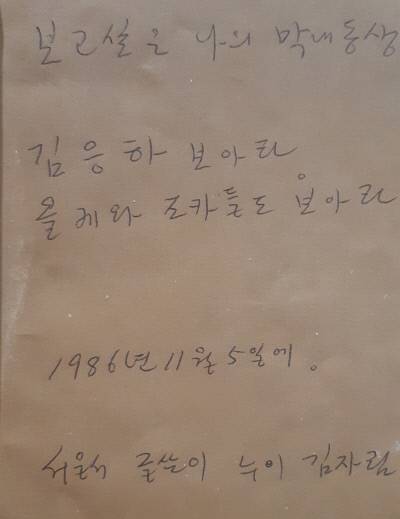 보고설은 나의 막내동생
김응하 보아라
올케와 조카들도 보아라
1986년 11월 5일에.
서울서 글쓴이 누이 김자림